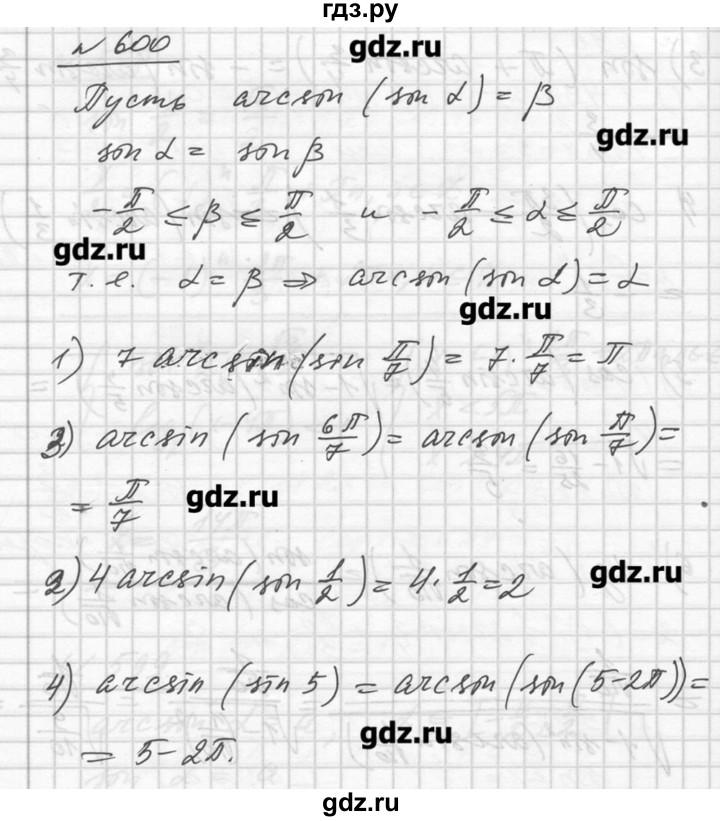 гдз.ру
№ 600
gdz.ru
Пусть arcsin (sin α) = β
gdz.ru
sin α = sin β
-π/2 ≤ β ≤ π/2 и -π/2 ≤ α ≤ π/2
gdz.ru
т. е. α = β ⇒ arcsin (sin α) = α
gdz.ru
1) 7 arcsin (sin π/7) = 7 · π/7 = π
3) arcsin (sin 6π/7) = arcsin (sin π/7) =
= π/7
gdz.ru
2) 4 arcsin (sin 1/2) = 4 · 1/2 = 2
gdz.ru
4) arcsin (sin 5) = arcsin (sin (5-2π)) =
gdz.ru
= 5 - 2π.
gdz.ru